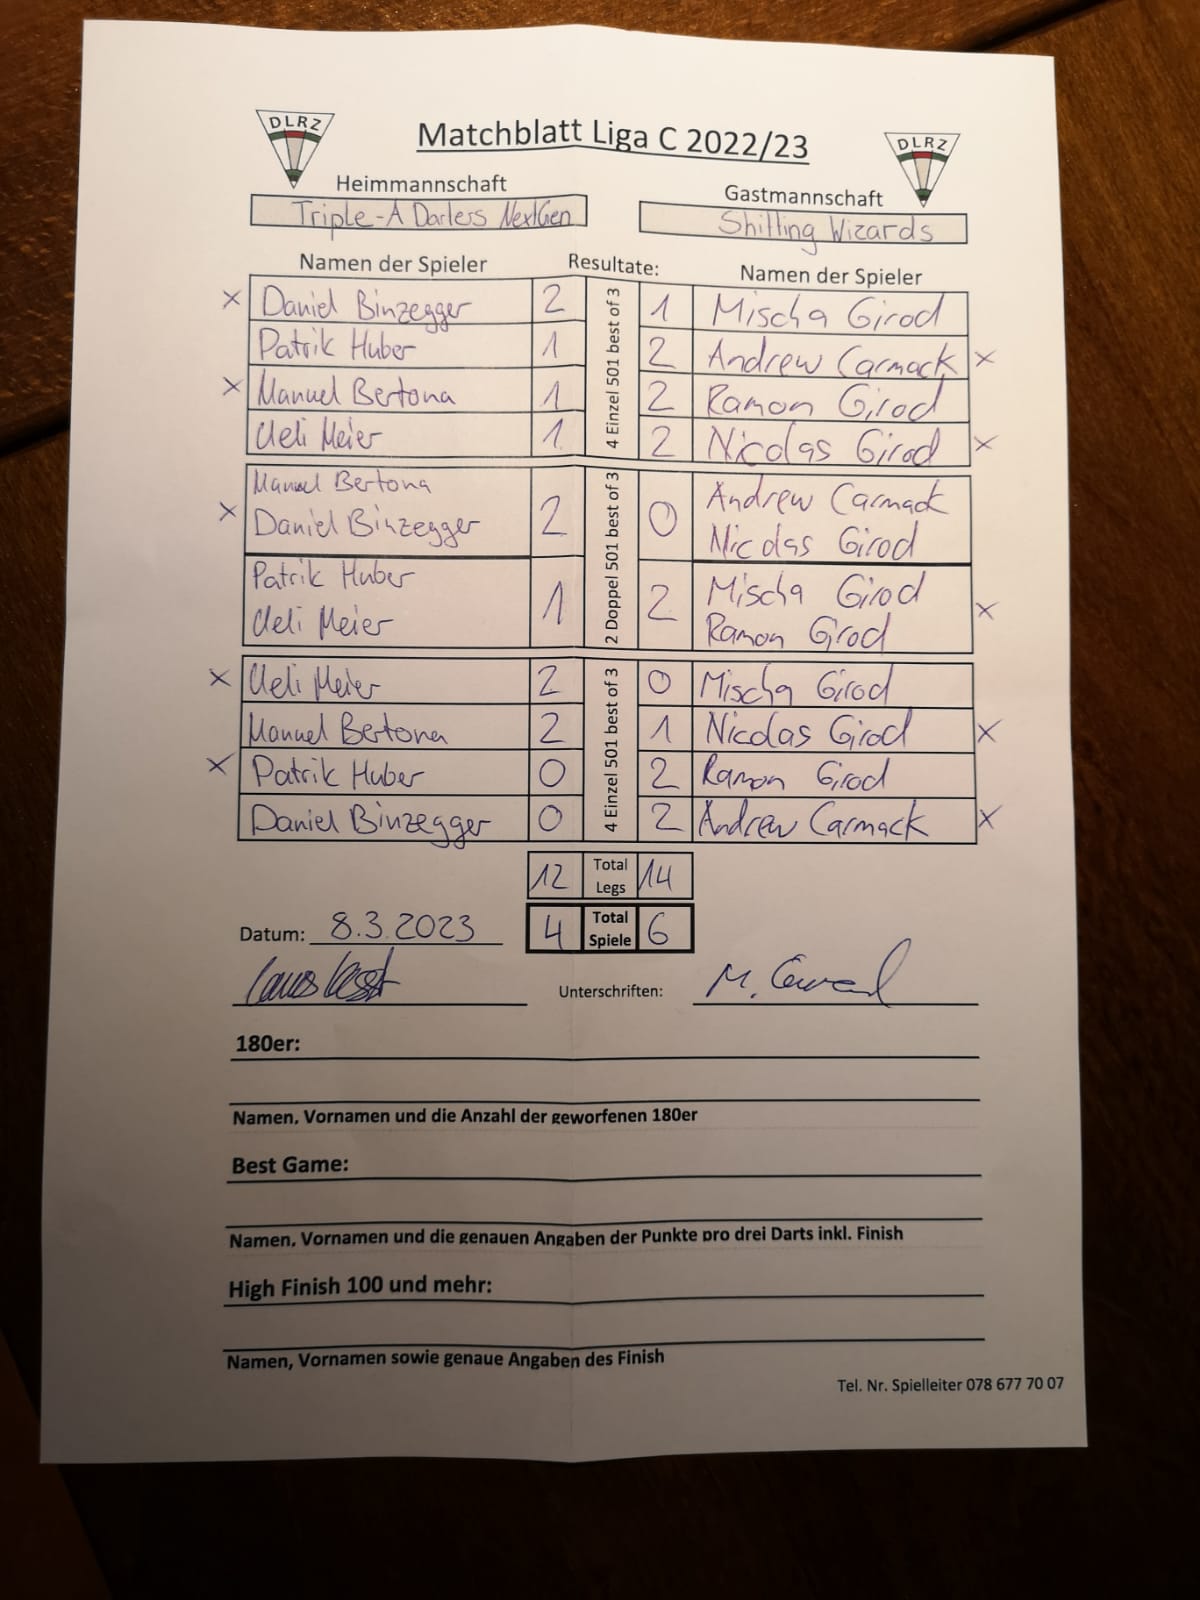 DLRZ
Matchblatt Liga C 2022/23
DLRZ
Heimmannschaft
Gastmannschaft
Triple-A Darters NextGen
Shitting Wizards
Namen der Spieler
Resultate:
Namen der Spieler
4 Einzel 501 best of 3
x Daniel Binzegger 2 1 Mischa Girod
Patrik Huber 1 2 Andrew Carmack x
x Manuel Bertona 1 2 Ramon Girod
Ueli Meier 1 2 Nicolas Girod x
2 Doppel 501 best of 3
Manuel Bertona Andrew Carmack
x Daniel Binzegger 2 0 Nicolas Girod
Patrik Huber 1 2 Mischa Girod
Ueli Meier Ramon Girod x
4 Einzel 501 best of 3
x Ueli Meier 2 0 Mischa Girod
Manuel Bertona 2 1 Nicolas Girod x
x Patrik Huber 0 2 Ramon Girod
Daniel Binzegger 0 2 Andrew Carmack x
12 Total Legs 14
4 Total Spiele 6
Datum: 8.3.2023
Unterschriften:
180er:
Namen, Vornamen und die Anzahl der geworfenen 180er
Best Game:
Namen, Vornamen und die genauen Angaben der Punkte pro drei Darts inkl. Finish
High Finish 100 und mehr:
Namen, Vornamen sowie genaue Angaben des Finish
Tel. Nr. Spielleiter 078 677 70 07